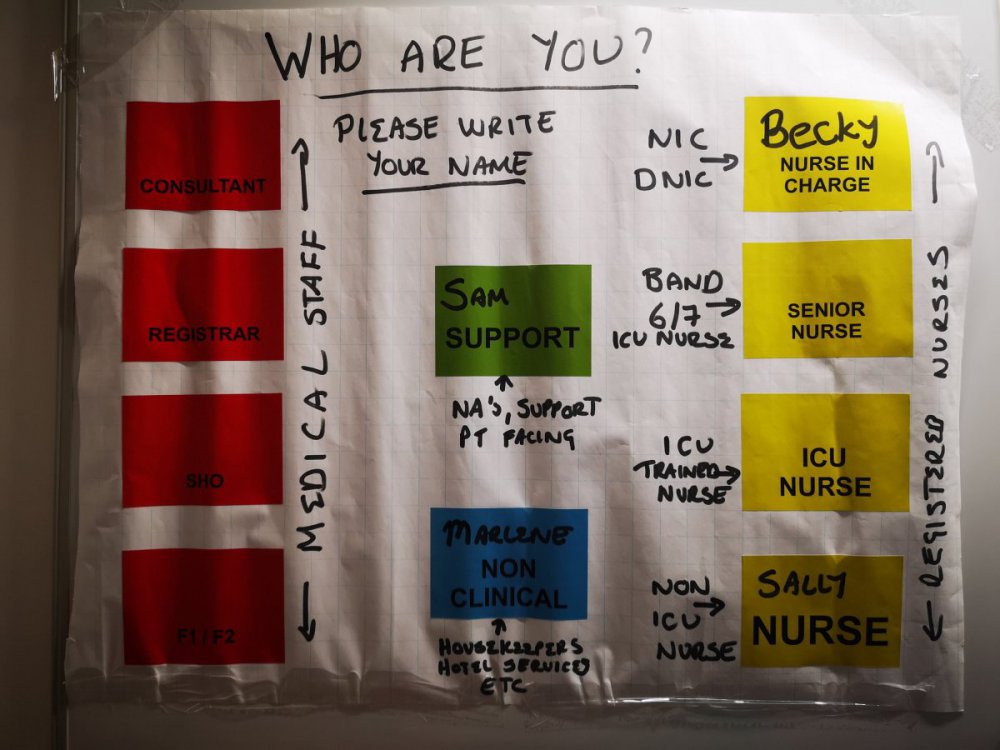 WHO ARE YOU?
PLEASE WRITE
YOUR NAME
CONSULTANT
REGISTRAR
SHO
F1 / F2
← MEDICAL STAFF →
SAM
SUPPORT
NA'S, SUPPORT
PT FACING
MARLENE
NON
CLINICAL
HOUSEKEEPERS
HOTEL SERVICES
ETC
NIC →
DNIC
Becky
NURSE IN
CHARGE
BAND
6/7 →
ICU NURSE
SENIOR
NURSE
ICU
TRAINED →
NURSE
ICU
NURSE
NON
ICU →
NURSE
SALLY
NURSE
← REGISTERED NURSES →